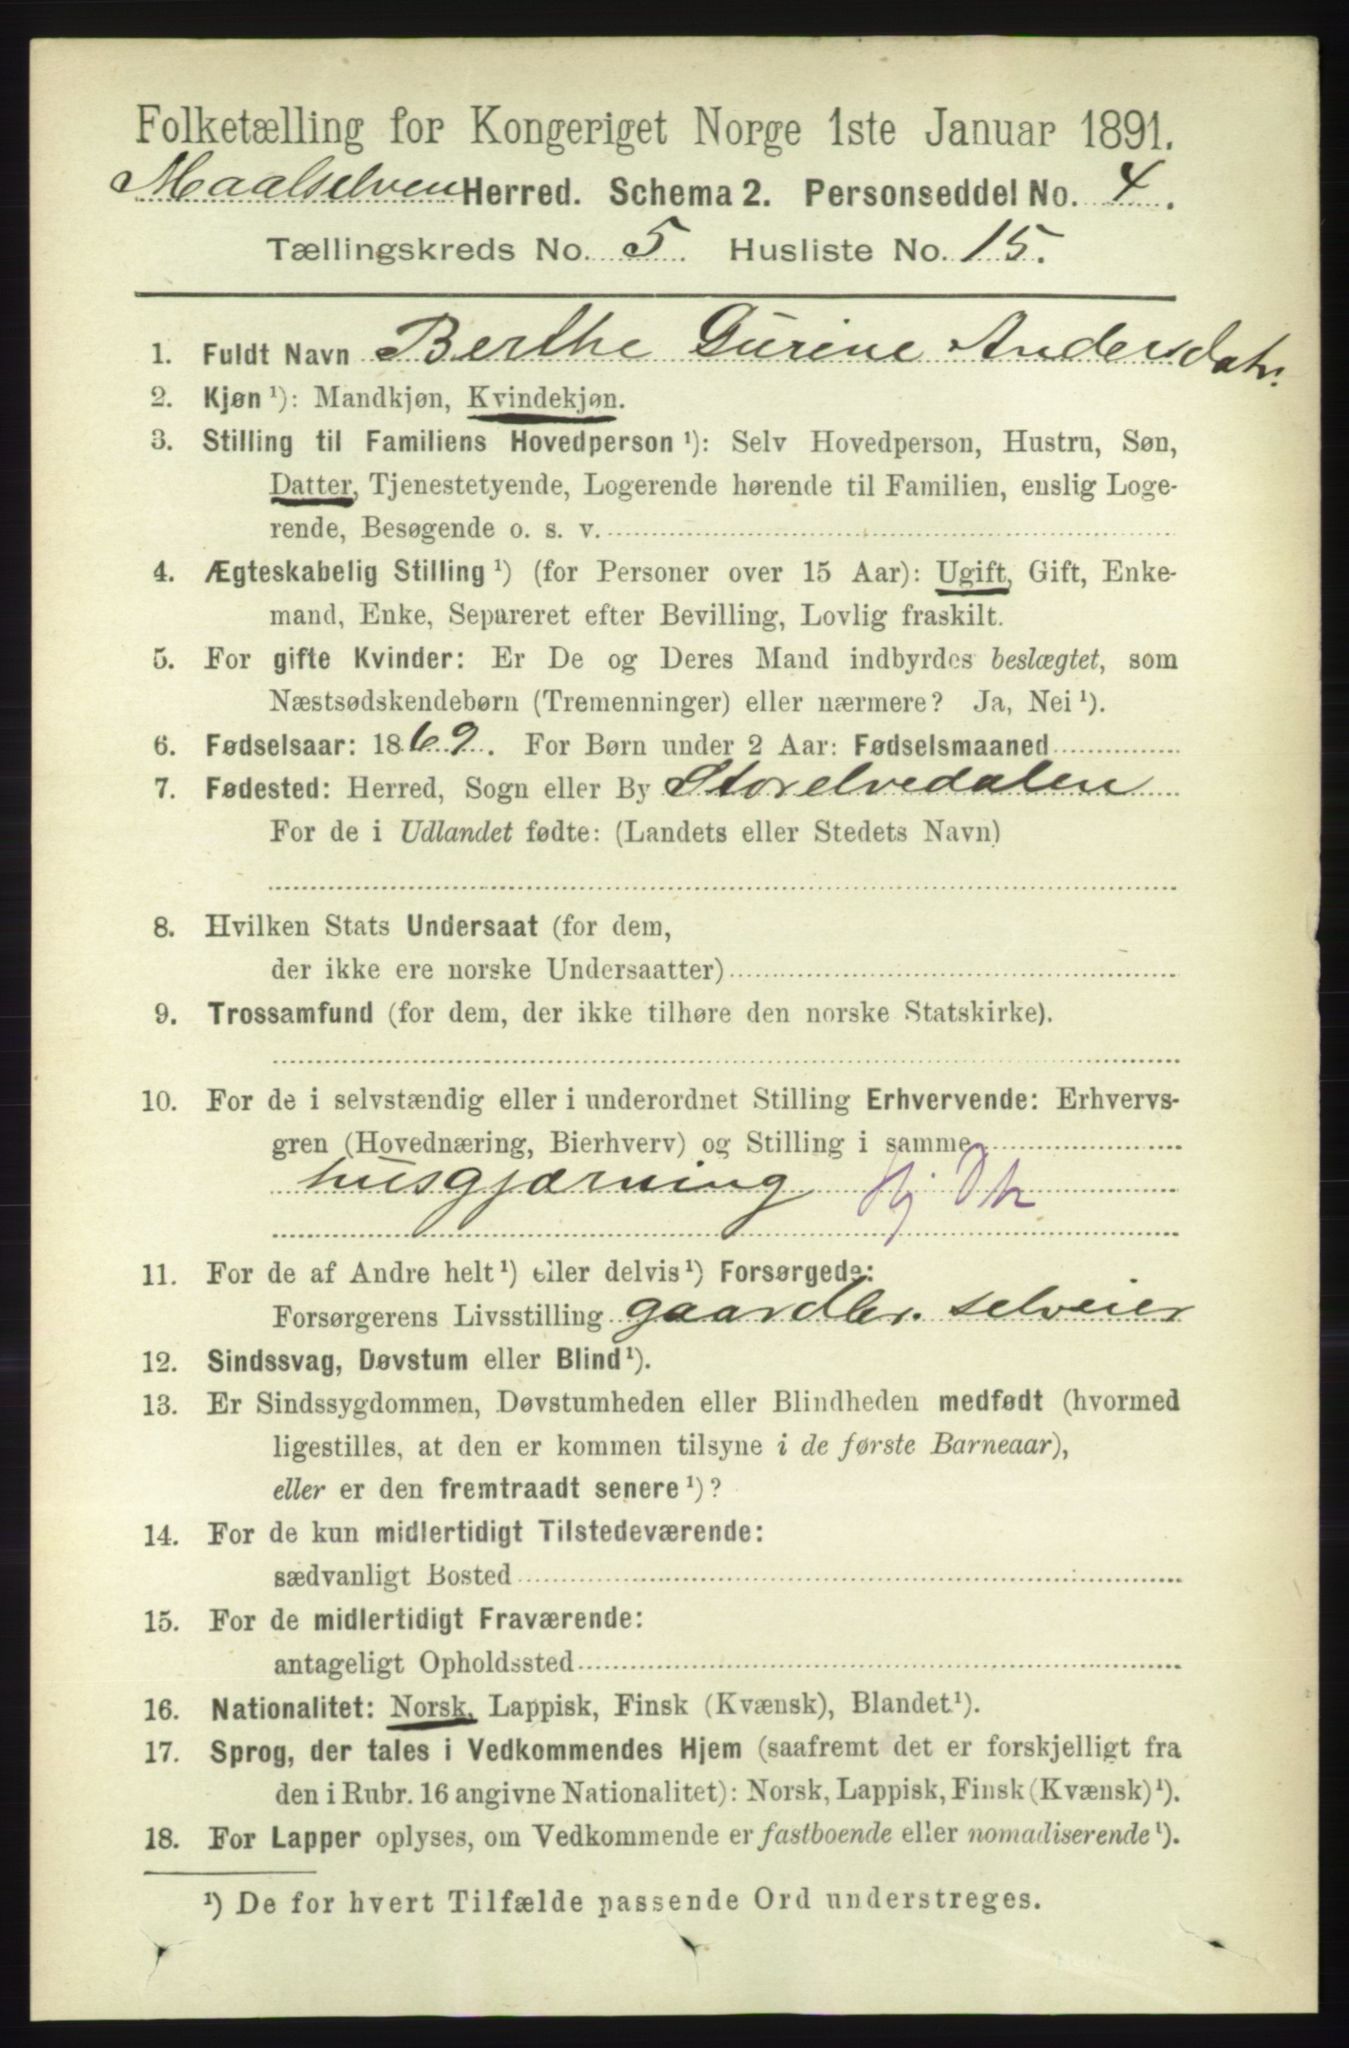 Folketælling for Kongeriget Norge 1ste Januar 1891.
Maalselven Herred. Schema 2. Personseddel No. 4.
Tællingskreds No. 5. Husliste No. 15.
1. Fuldt Navn Berthe Gurine Andersdatr.
2. Kjøn ¹): Mandkjøn, Kvindekjøn.
3. Stilling til Familiens Hovedperson ¹): Selv Hovedperson, Hustru, Søn,
Datter, Tjenestetyende, Logerende hørende til Familien, enslig Loge-
rende, Besøgende o. s. v.
4. Ægteskabelig Stilling ¹) (for Personer over 15 Aar): Ugift, Gift, Enke-
mand, Enke, Separeret efter Bevilling, Lovlig fraskilt.
5. For gifte Kvinder: Er De og Deres Mand indbyrdes beslægtet, som
Næstsødskendebørn (Tremenninger) eller nærmere? Ja, Nei ¹).
6. Fødselsaar: 1869. For Børn under 2 Aar: Fødselsmaaned
7. Fødested: Herred, Sogn eller By Storelvedalen
For de i Udlandet fødte: (Landets eller Stedets Navn)
8. Hvilken Stats Undersaat (for dem,
der ikke ere norske Undersaatter)
9. Trossamfund (for dem, der ikke tilhøre den norske Statskirke).
10. For de i selvstændig eller i underordnet Stilling Erhvervende: Erhvervs-
gren (Hovednæring, Bierhverv) og Stilling i samme
husgjærning Hj Dtr
11. For de af Andre helt ¹) eller delvis ¹) Forsørgede:
Forsørgerens Livsstilling gaardbr. selveier
12. Sindssvag, Døvstum eller Blind ¹).
13. Er Sindssygdommen, Døvstumheden eller Blindheden medfødt (hvormed
ligestilles, at den er kommen tilsyne i de første Barneaar),
eller er den fremtraadt senere ¹)?
14. For de kun midlertidigt Tilstedeværende:
sædvanligt Bosted
15. For de midlertidigt Fraværende:
antageligt Opholdssted
16. Nationalitet: Norsk, Lappisk, Finsk (Kvænsk), Blandet ¹).
17. Sprog, der tales i Vedkommendes Hjem (saafremt det er forskjelligt fra
den i Rubr. 16 angivne Nationalitet): Norsk, Lappisk, Finsk (Kvænsk) ¹).
18. For Lapper oplyses, om Vedkommende er fastboende eller nomadiserende ¹).
¹) De for hvert Tilfælde passende Ord understreges.